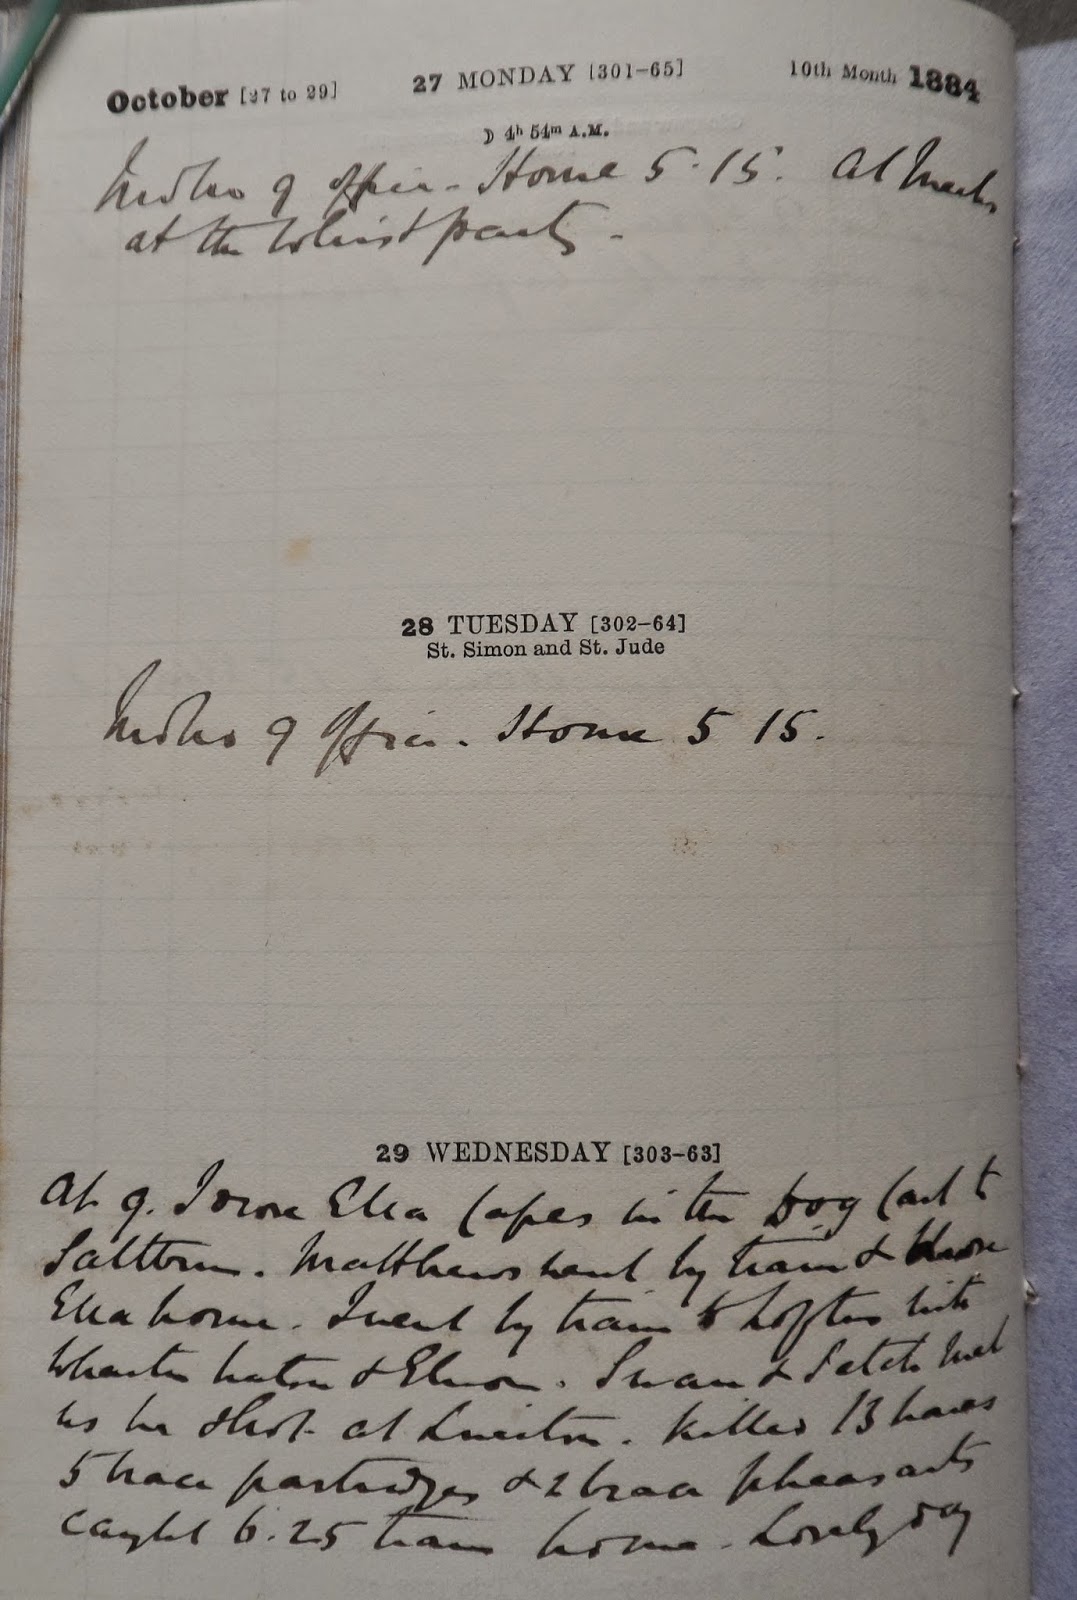 October [27 to 29] 27 MONDAY [301-65] 10th Month 1884
☽ 4h 54m A.M.
9 office - Home 5.15. at
at the Whist party -
28 TUESDAY [302-64]
St. Simon and St. Jude
9 Office. Home 5 15.
29 WEDNESDAY [303-63]
at 9. I drove Ella Capes in the Dog Cart to
Saltburn. Matthews went by train & drove
Ella home. I went by train to Loftus with
&. Swan & Petch met
us we shot at. Killed 13 hares
5 brace partridges & 2 brace pheasants
caught 6.25 train home. Lovely day